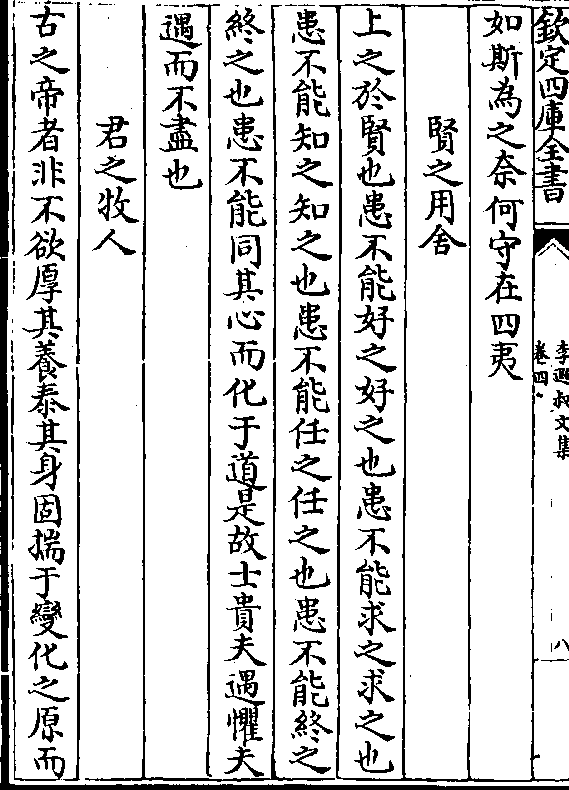 欽定四庫全書
李遐叔文集
卷四
八
如斯為之奈何守在四夷
賢之用舍
上之於賢也患不能好之好之也患不能求之求之也
患不能知之知之也患不能任之任之也患不能終之
終之也患不能同其心而化于道是故士貴夫遇懼夫
遇而不盡也
君之牧人
古之帝者非不欲厚其養泰其身固揣于變化之原而